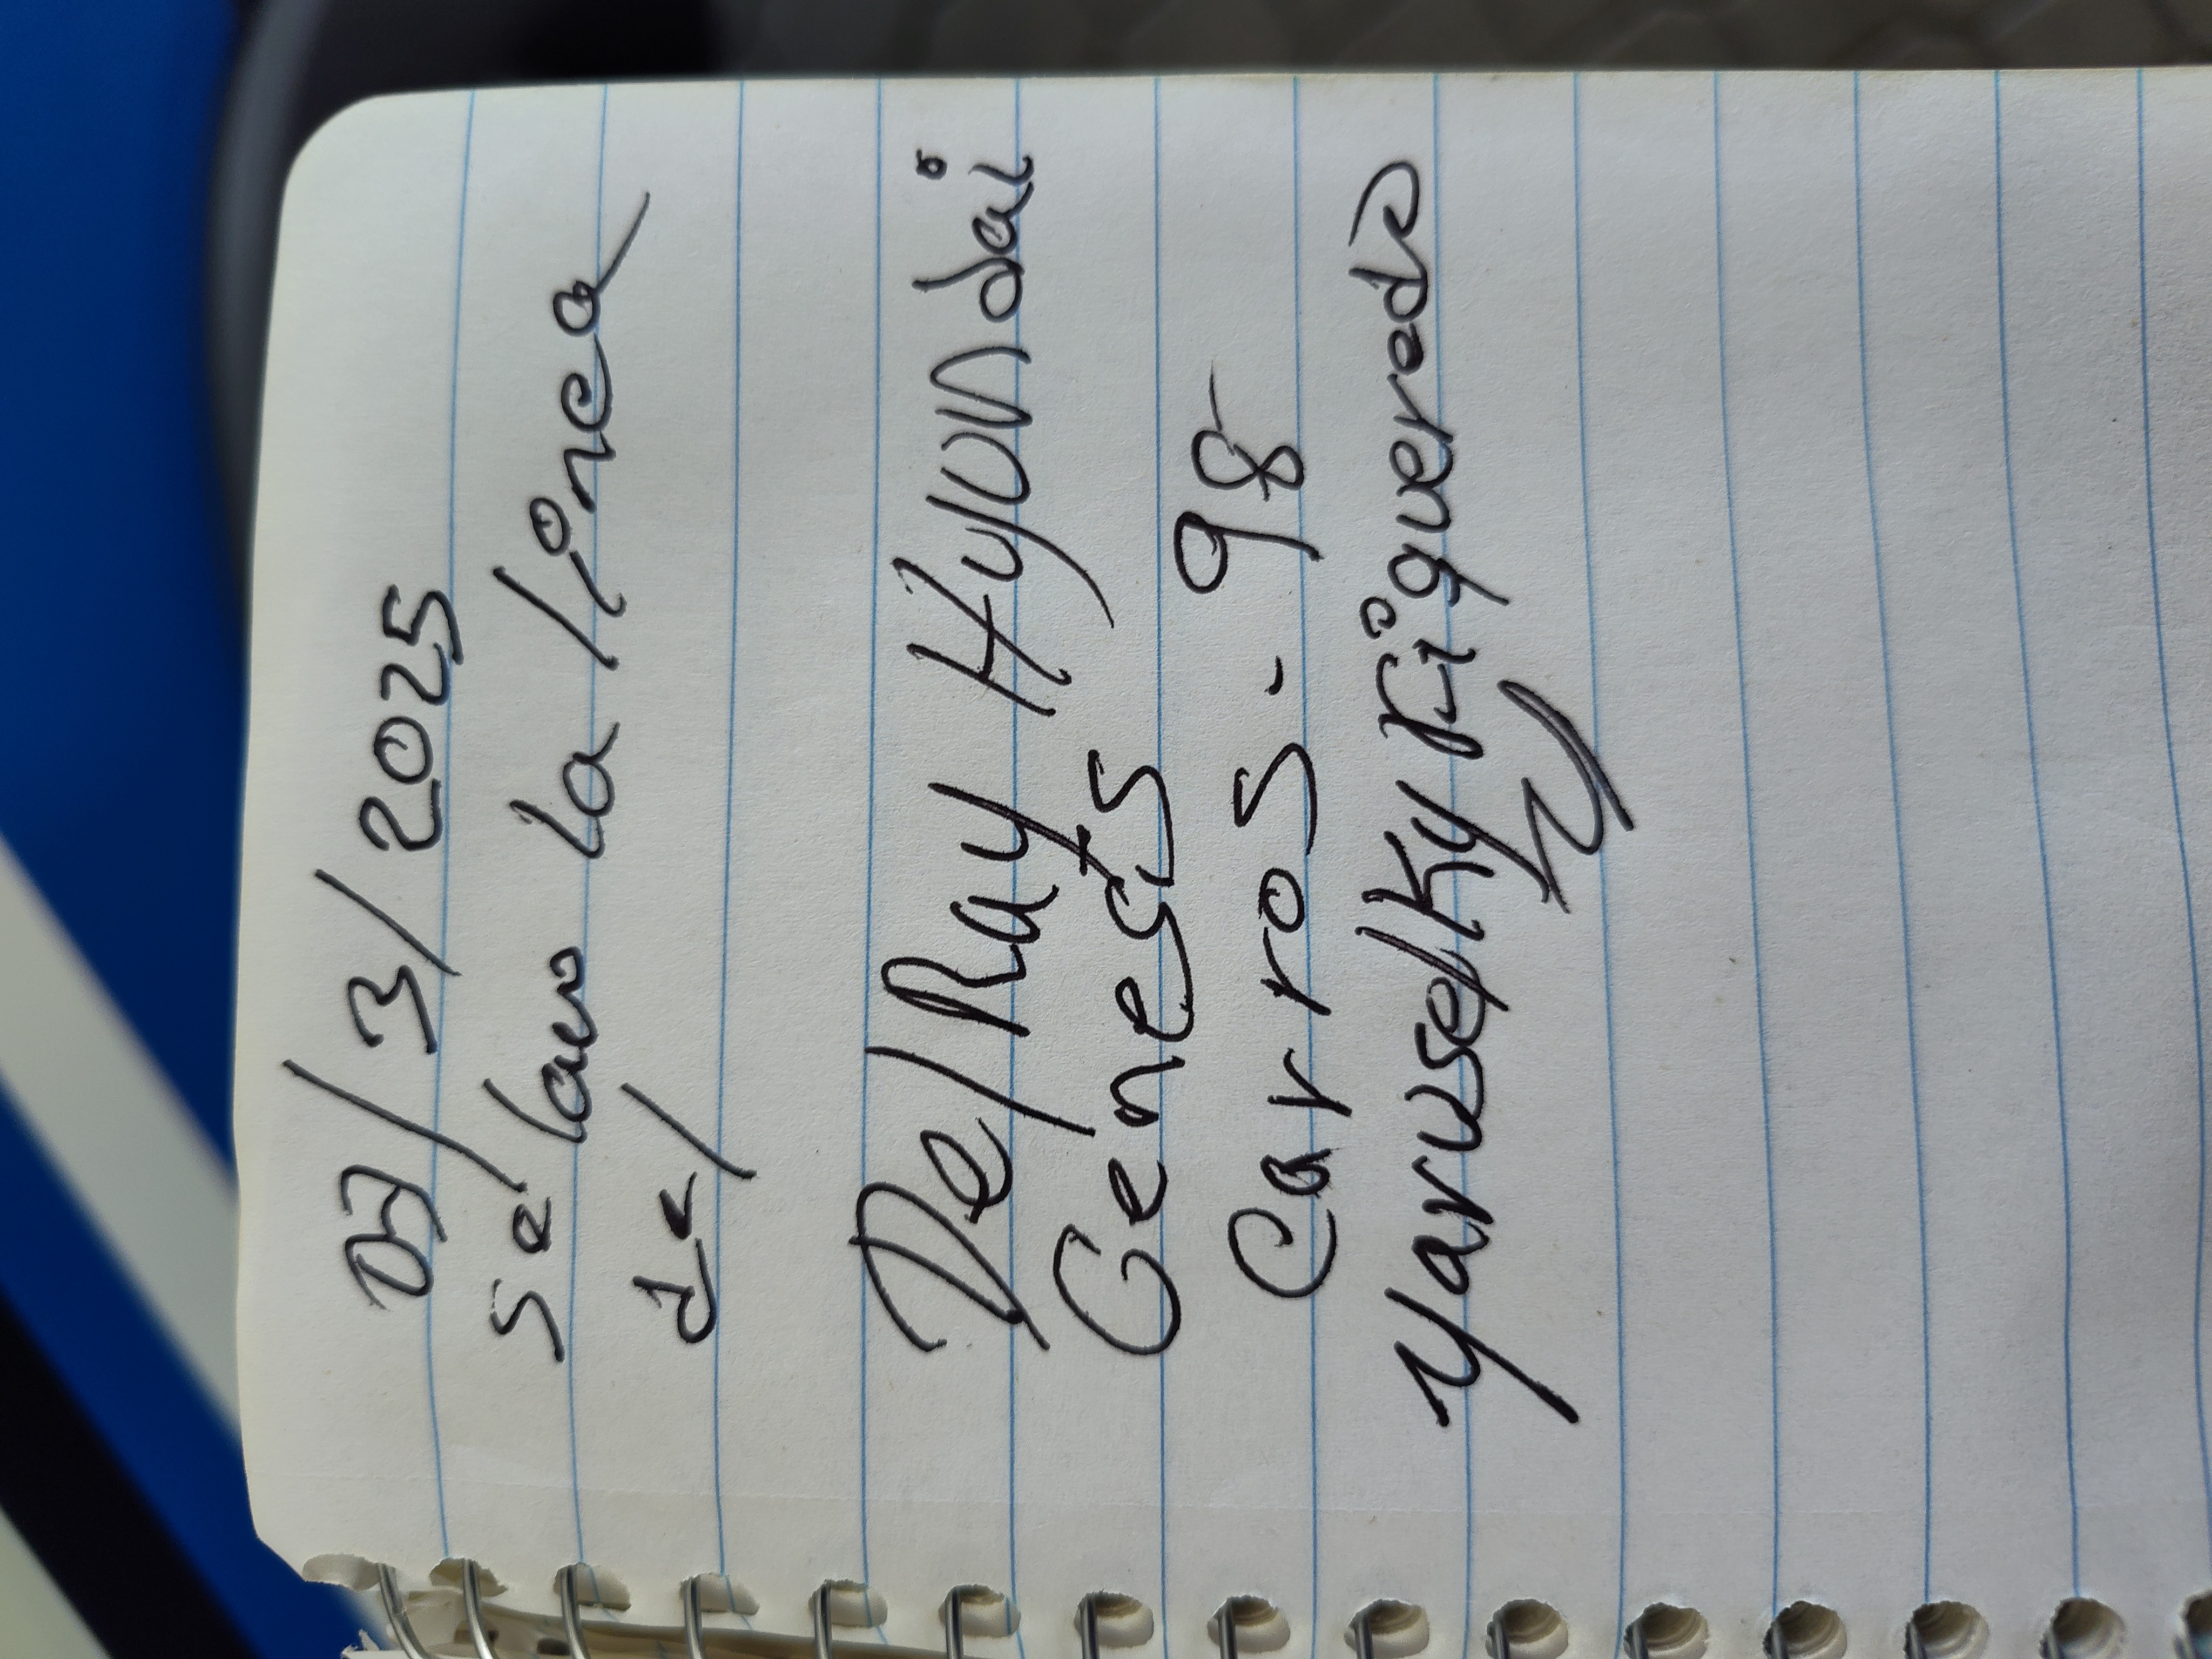 07/3/2025
se lavo la línea
del
Del Ray Hyundai
Genesis
Carros. 98
Yaruselky Figueredo